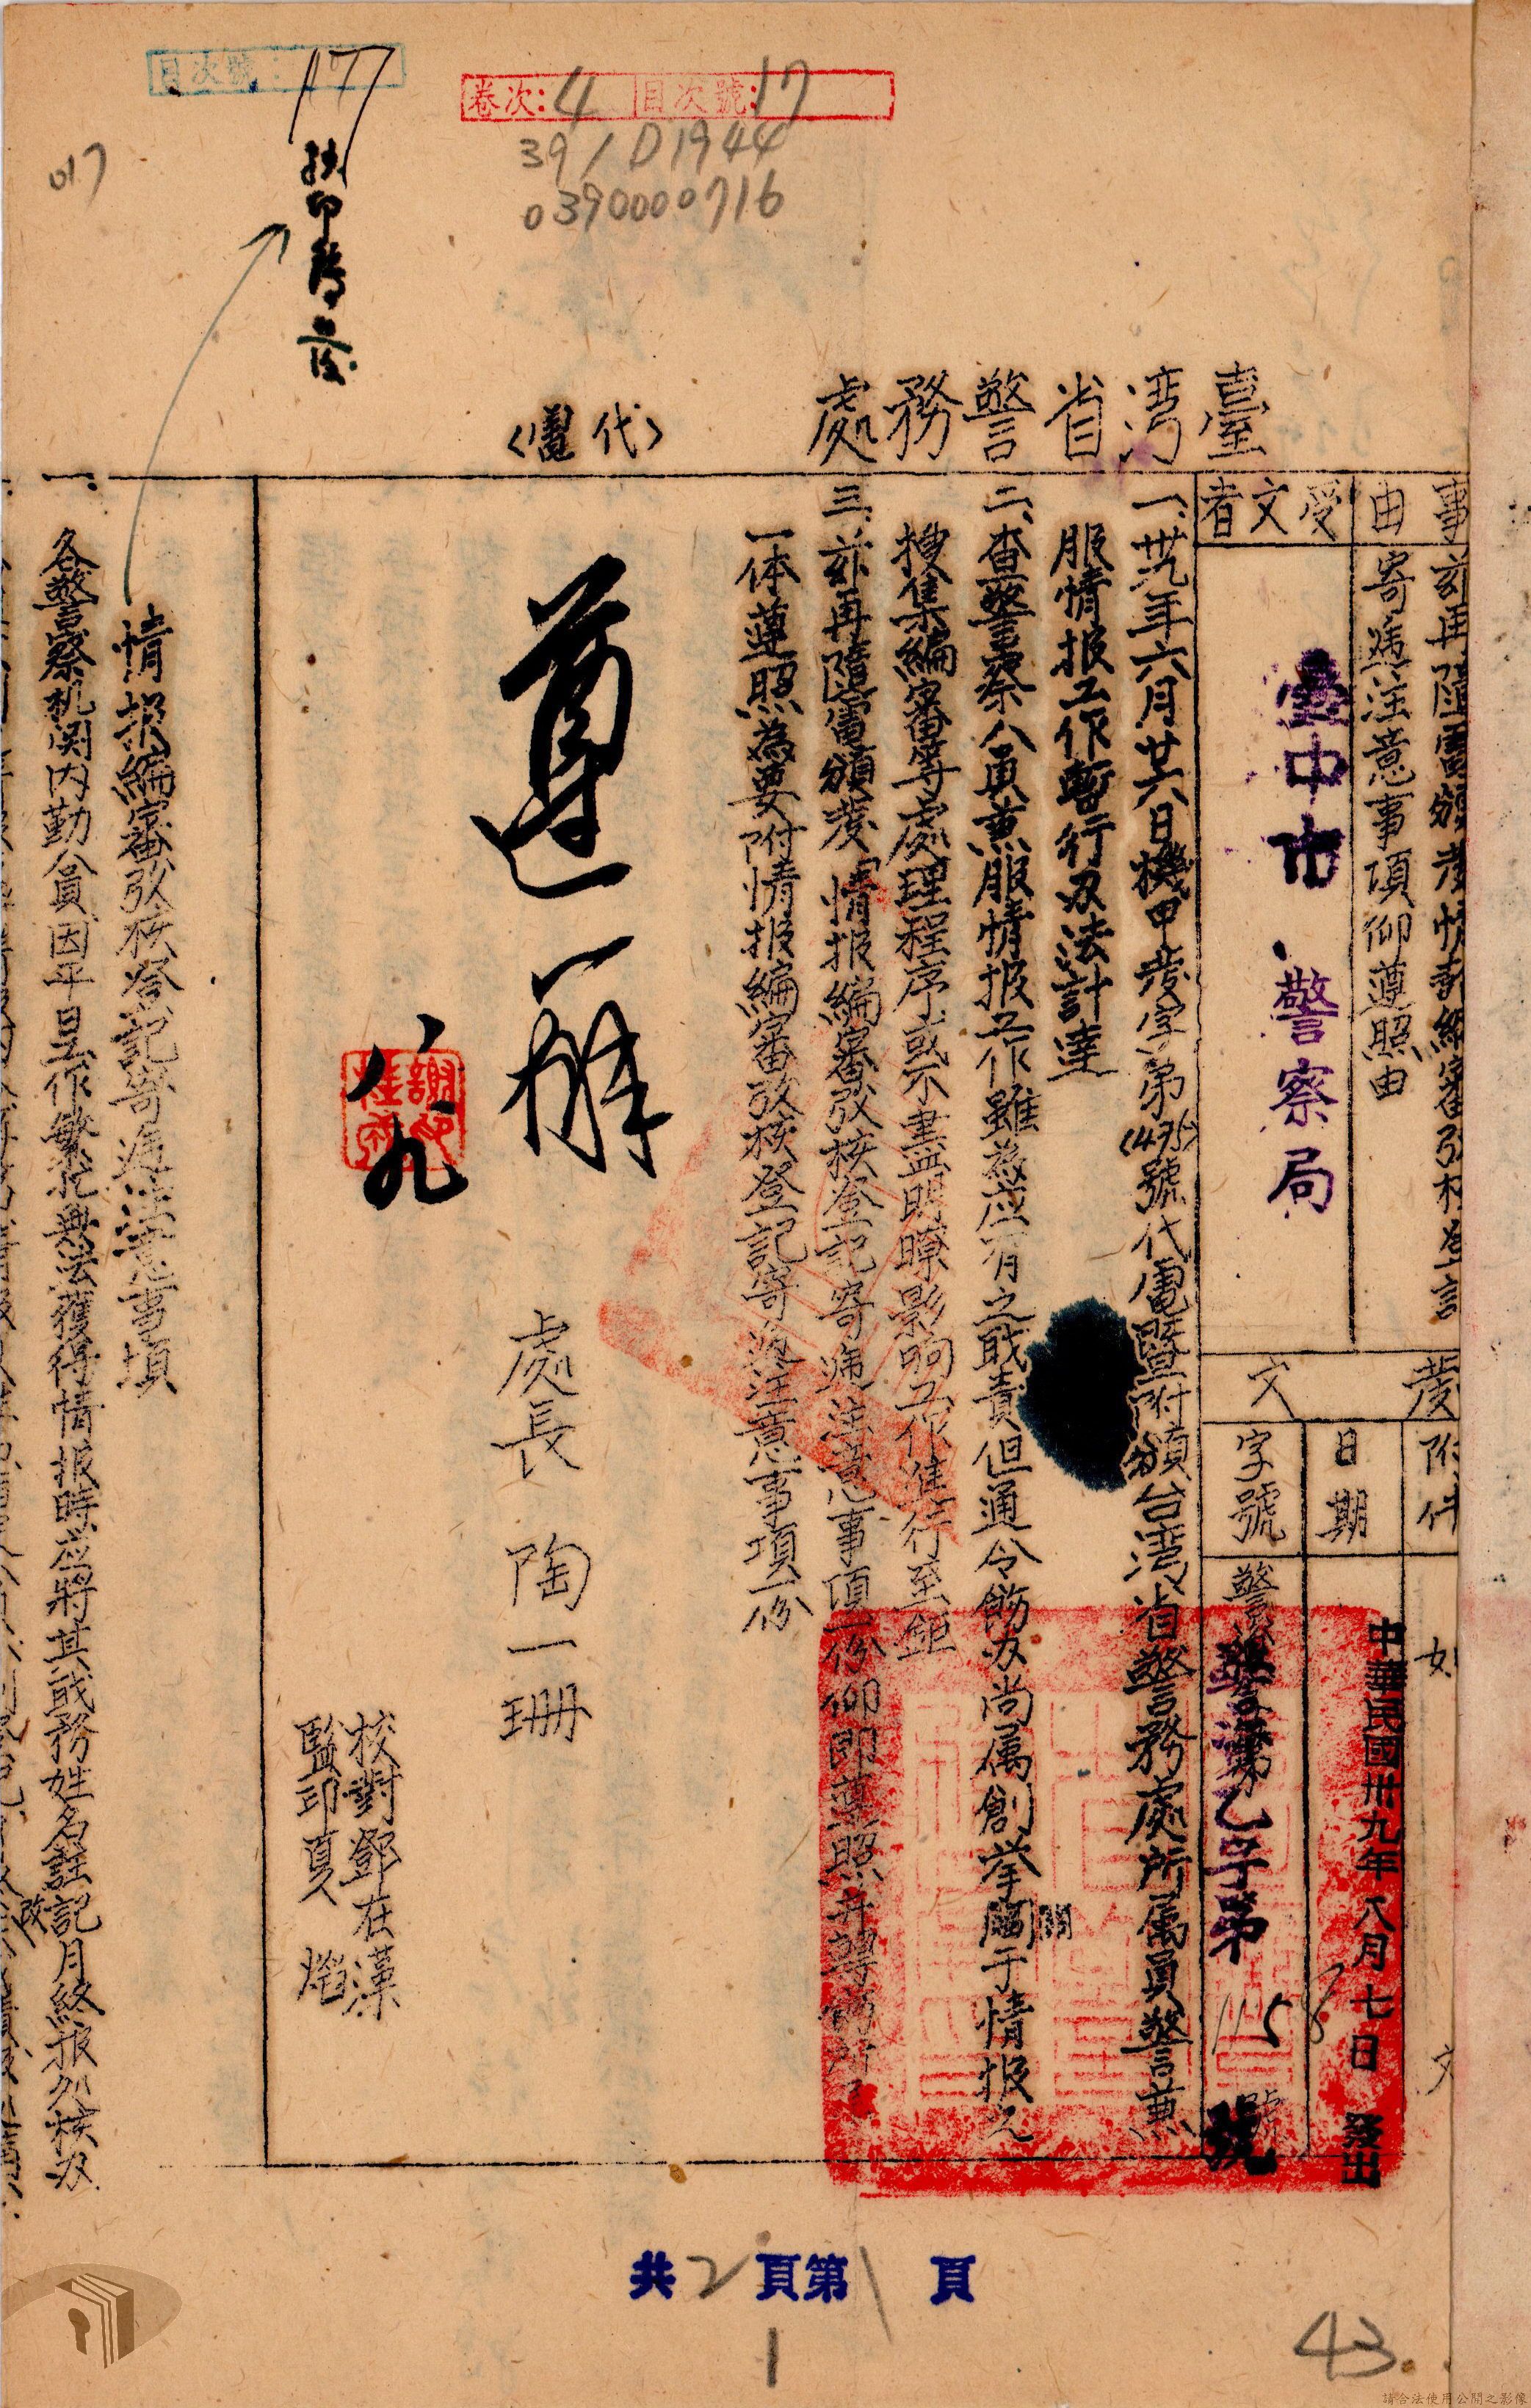 目次號：17
卷次：4 目次號：17
39/D1944
0390000716
017
臺灣省警務處
(代電)
事由
茲再隨電頒發情報編審攷核登記
寄遞注意事項仰遵照由
受文者
臺中市警察局
發文
附件 如文
日期 中華民國卅九年八月七日發出
字號 警
乙字第1158號
一、卅九年六月廿六日機甲發字第(1475)號代電暨附頒台湾省警務處所属員警兼
服情报工作暫行办法計達
二、查警察人員兼服情报工作雖為应有之戝責但通令飭办尚属創举關于情报之
搜集編審等處理程序或不盡明瞭影响工作進行至鉅
三、茲再隨電頒發「情报編審攷核登記寄遞注意事項一份仰即遵照并轉飭所
一体遵照為要附情报編審攷核登記寄遞注意事項一份
處長 陶一珊
校對鄧在漢
監印夏
遵辦
八九
謝
情报編審攷核登記寄遞注意事項
一、各警察机関内勤人員因平日工作繁忙無法獲得情报時应將其戝務姓名註記月終报处核办
改
共2頁第1頁
1
43
請合法使用公開之影像